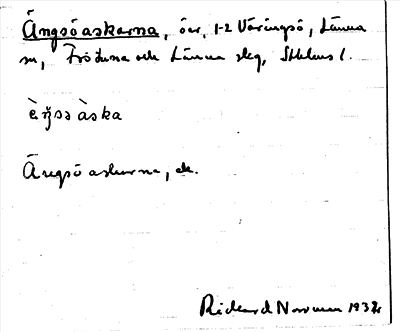 Ängsöaskarna, öar, 1-2 Väringsö, Länna
sn, Fröåuna och Länna skg, Sthlms l.
è̀ŋsə àska
Ängsö askarna, ek.
Rickard Norrman 1932